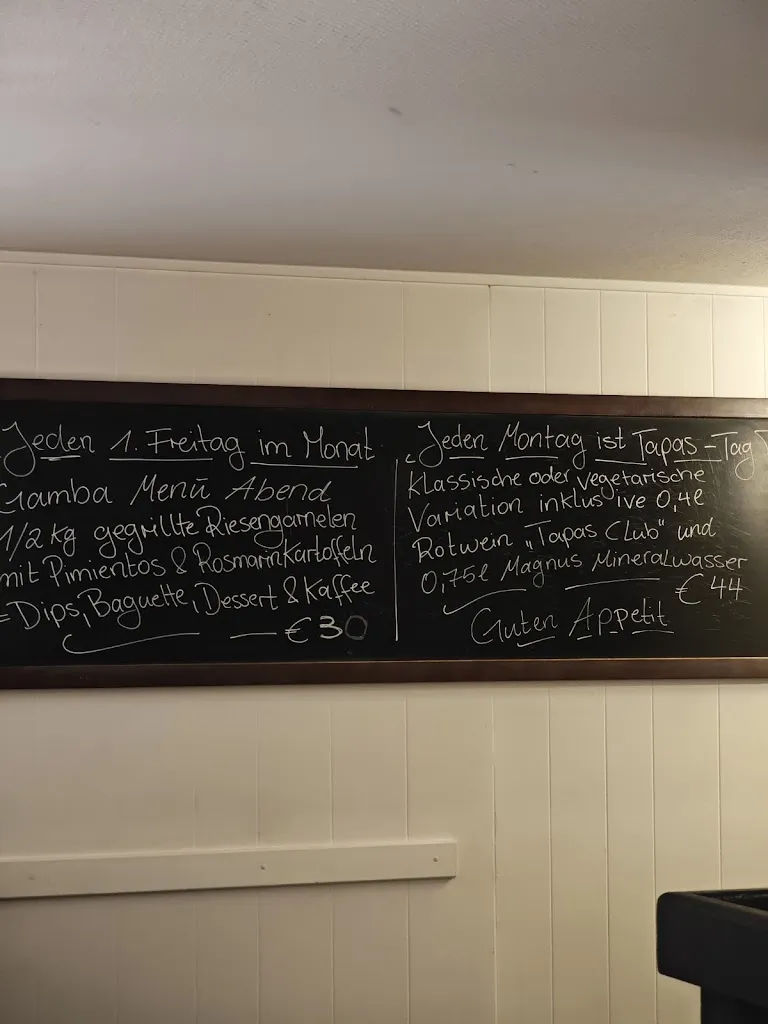 Jeden 1. Freitag im Monat
Gamba Menü Abend
1/2 kg gegrillte Riesengarnelen
mit Pimientos & Rosmarinkartoffeln
=Dips, Baguette, Dessert & Kaffee
€30
"Jeden Montag ist Tapas-Tag
Klassische oder vegetarische
Variation inklusive 0,4l
Rotwein „Tapas Club“ und
0,75l Magnus Mineralwasser
€44
Guten Appetit